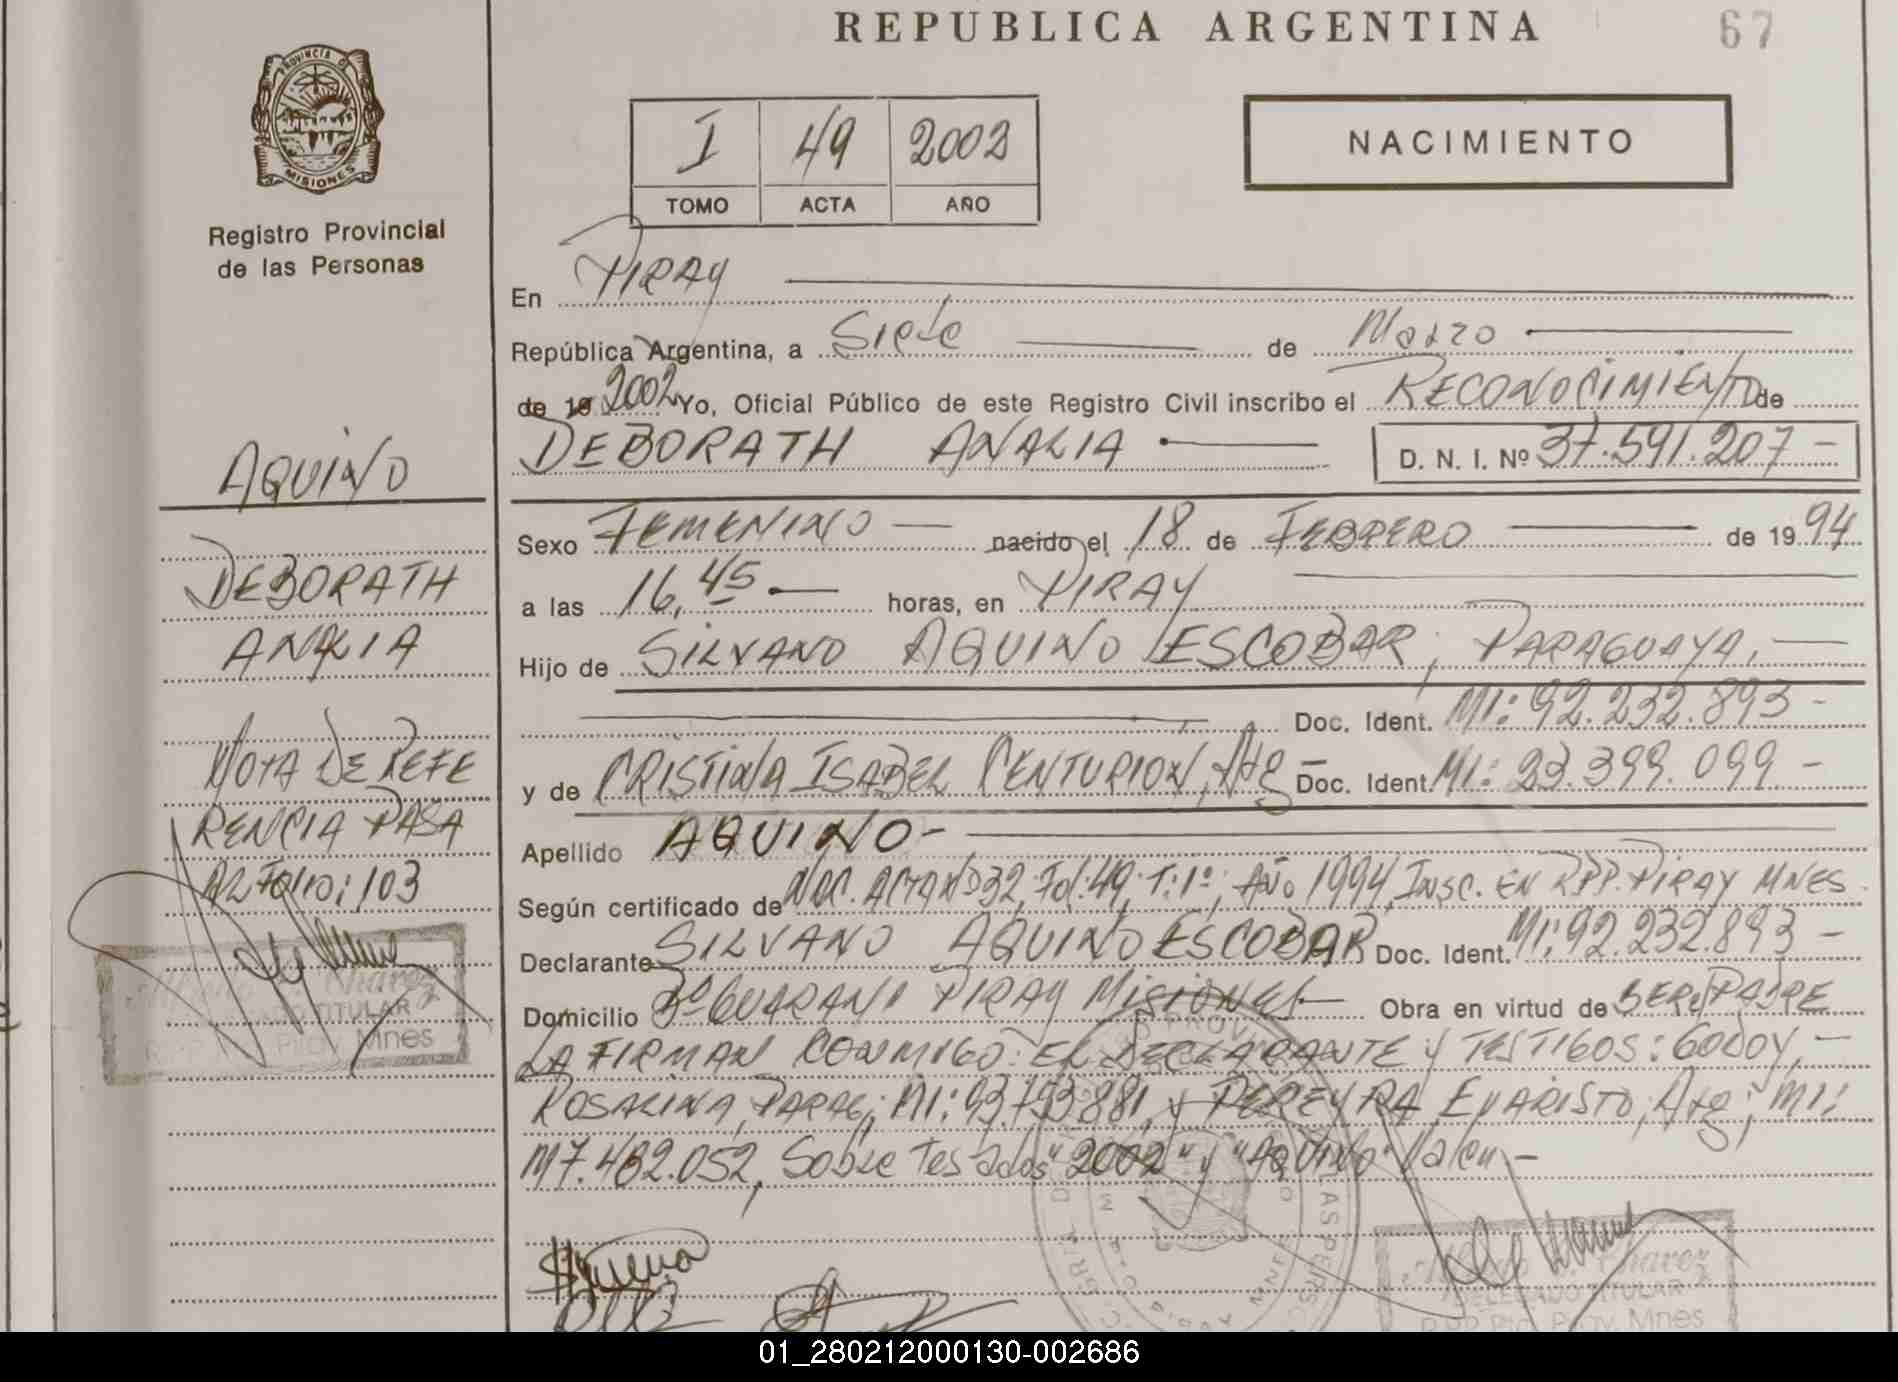 REPUBLICA ARGENTINA
67
PROVINCIA DE
MISIONES
Registro Provincial
de las Personas
I 49 2002
TOMO ACTA AÑO
NACIMIENTO
En PIRAY
República Argentina, a Siete de Marzo
de 19 2002 Yo, Oficial Público de este Registro Civil inscribo el RECONOCIMIENTO de
DEBORATH ANALIA D. N. I. Nº 37.591.207 -
Sexo FEMENINO nacido el 18 de FEBRERO de 1994
a las 16,45 horas, en PIRAY
Hijo de SILVANO AQUINO ESCOBAR, PARAGUAYA,
Doc. Ident. MI: 92.232.893 -
y de CRISTINA ISABEL CENTURION, Arg - Doc. Ident. MI: 23.399.099 -
Apellido AQUINO -
Según certificado de NAC. ACTA Nº 32, Fol: 49, T: 1º, Año 1994, INSC. EN RPP. PIRAY MNES.
Declarante SILVANO AQUINO ESCOBAR Doc. Ident. MI: 92.232.893 -
Domicilio Bº GUARANI PIRAY MISIONES Obra en virtud de SER PADRE
LA FIRMAN CONMIGO: EL DECLARANTE Y TESTIGOS: GODOY, -
ROSALINA, PARAG; MI: 93.793.881, y PEREYRA EVARISTO, Arg; MI:
M7.482.052, Sobre Testados "2002" y "AQUINO" Valen -
AQUINO
DEBORATH
ANALIA
NOTA DE REFE
RENCIA PASA
AL FOLIO: 103
Chavez
DELEGADO TITULAR
Piray Mnes
Chavez
DELEGADO TITULAR
R.P.P. Pto. Piray Mnes
01_280212000130-002686